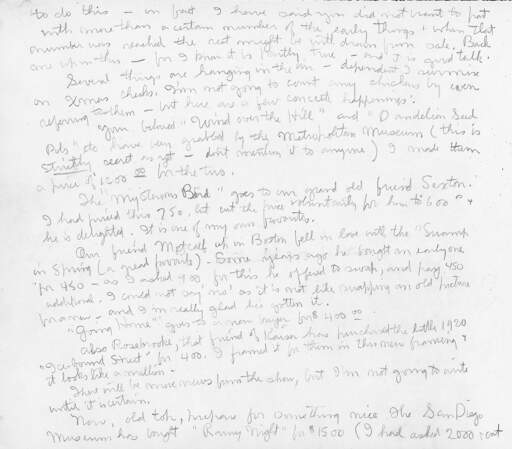 to do this — in fact I have said you did not want to part
with more than a certain number of the early things & when that
number was reached the rest might be withdrawn from sale. Back
me up in this — for I know it is partly true — and J is good talk.
Several things are hanging in the air — dependent I surmise
on Xmas checks. I'm not going to count any chickens by even
referring to them — but here are a few concrete happenings:
Your beloved "Wind over the Hill" and "Dandelion Seed
Pods" etc have been grabbed by the Metropolitan Museum (this is
strictly secret as yet — don't mention it to anyone.) I made them
a price of 1200 00 for the two.
The "Mysterious Bird" goes to our grand old friend Sexton.
I had priced this 750, but cut the price voluntarily for him to 600 00 &
he is delighted. It is one of my own favorites.
Our friend Metcalf up in Boston fell in love with the "Swamp
in Spring" (a great favorite). Some years ago he bought an early one
for 450 — as I asked 900, for this he offered to swap, and pay 450
additional. I could not say 'no' as it is not like swapping an old picture
for a new — and I'm really glad he's gotten it.
"Going Home" goes to a man for $400 00
also Rosebrooke, that friend of Kaiser has purchased the little 1920
"Icebound Street" for 400. I framed it for them in this new framing &
it looks like a million —
There will be more news from the show, but I'm not going to write
until it is certain.
Now, old top, prepare for something nice The San Diego
Museum has bought "Rainy Night" for $1500 (I had asked 2000 & cut